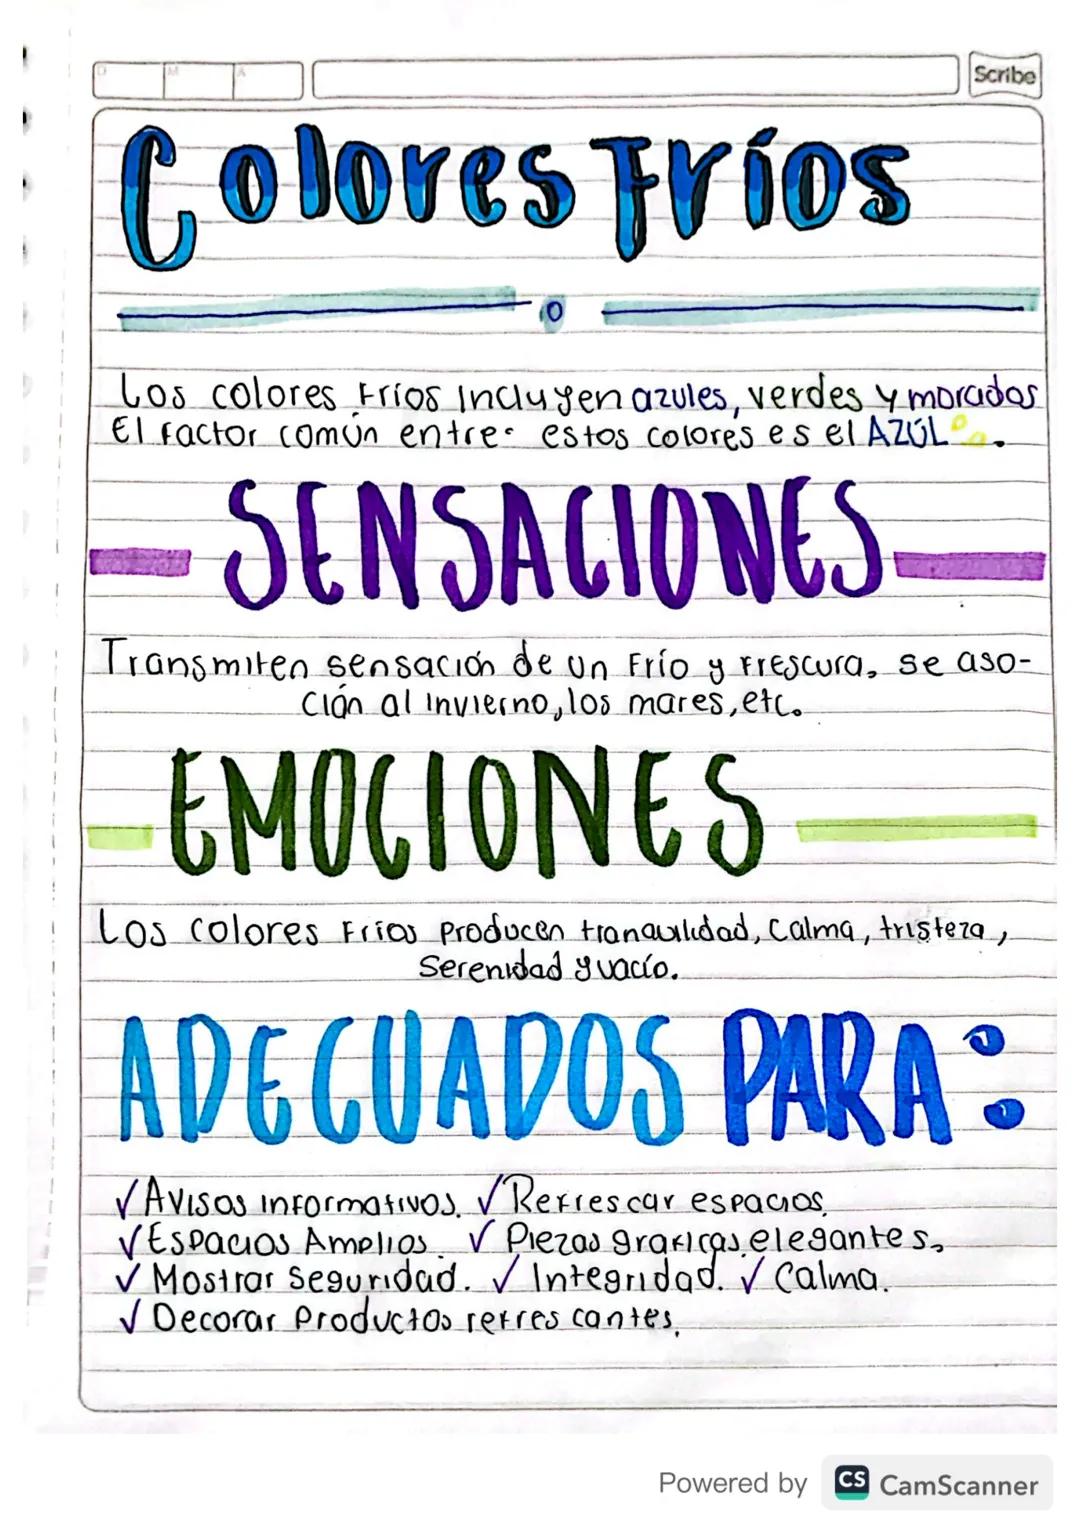 D M A
Scribe
Colores Fríos
Los colores Fríos incluyen azules, verdes y morados
El Factor común entre estos colores es el AZÚL.
SENSACIONES
Transmiten sensación de un Frío y Frescura, se aso-
ción al invierno, los mares, etc.
EMOCIONES
Los colores Fríos producen tranquilidad, Calma, tristeza,
Serenidad y vacío.
ADECUADOS PARA:
✓ Avisos informativos. ✓ Refrescar espacios.
✓ Espacios Amplios. ✓ Piezas graficas elegantes.
✓ Mostrar Seguridad. ✓ Integridad. ✓ Calma.
✓ Decorar Productos refrescantes.
Powered by CS CamScanner